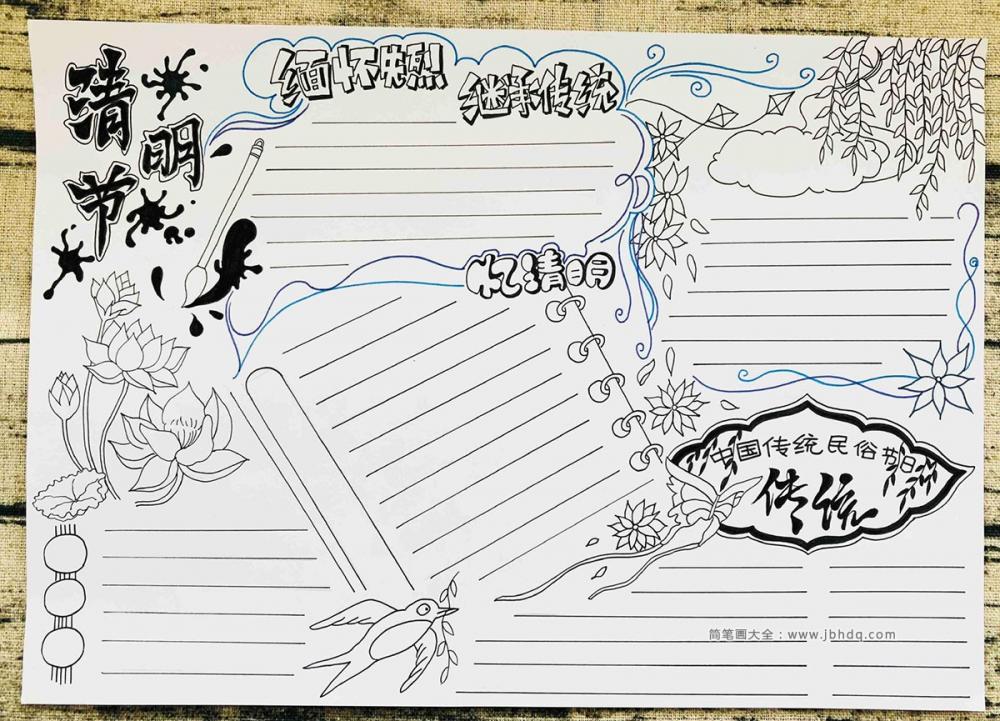 清明节
缅怀先烈
继承传统
忆清明
中国传统民俗节日
传统
简笔画大全：www.jbhdq.com